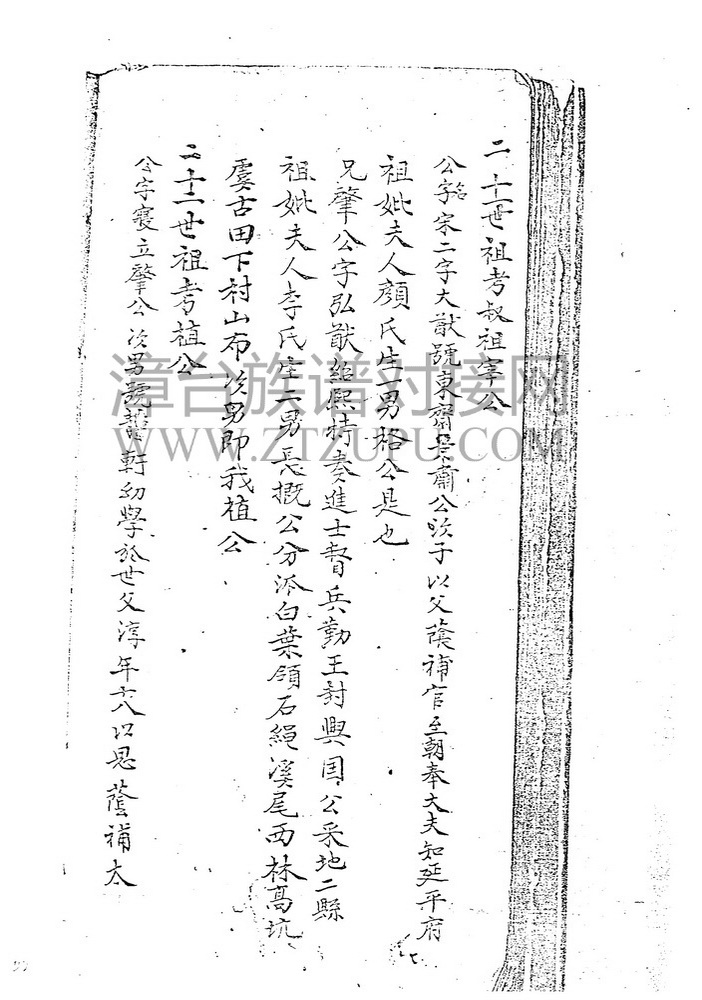 二十一世祖考叔祖宰公
公名字宋二字大猷號東齋景肅公次子以父蔭補官至朝奉大夫知延平府
祖妣夫人顏氏生男格公是也
兄肇公字弘猷紹熙特奏進士督兵勤王封興国公采地二縣
祖妣夫人李氏生二男長概公分派白葉領石繩溪尾西林高坑
虔古田下村山布次男即我植公
二十二世祖考植公
公字寢立肇公次男號軒幼學於世父淳年十八以恩蔭補太
漳台族谱对接网
WWW.ZTZUPU.COM